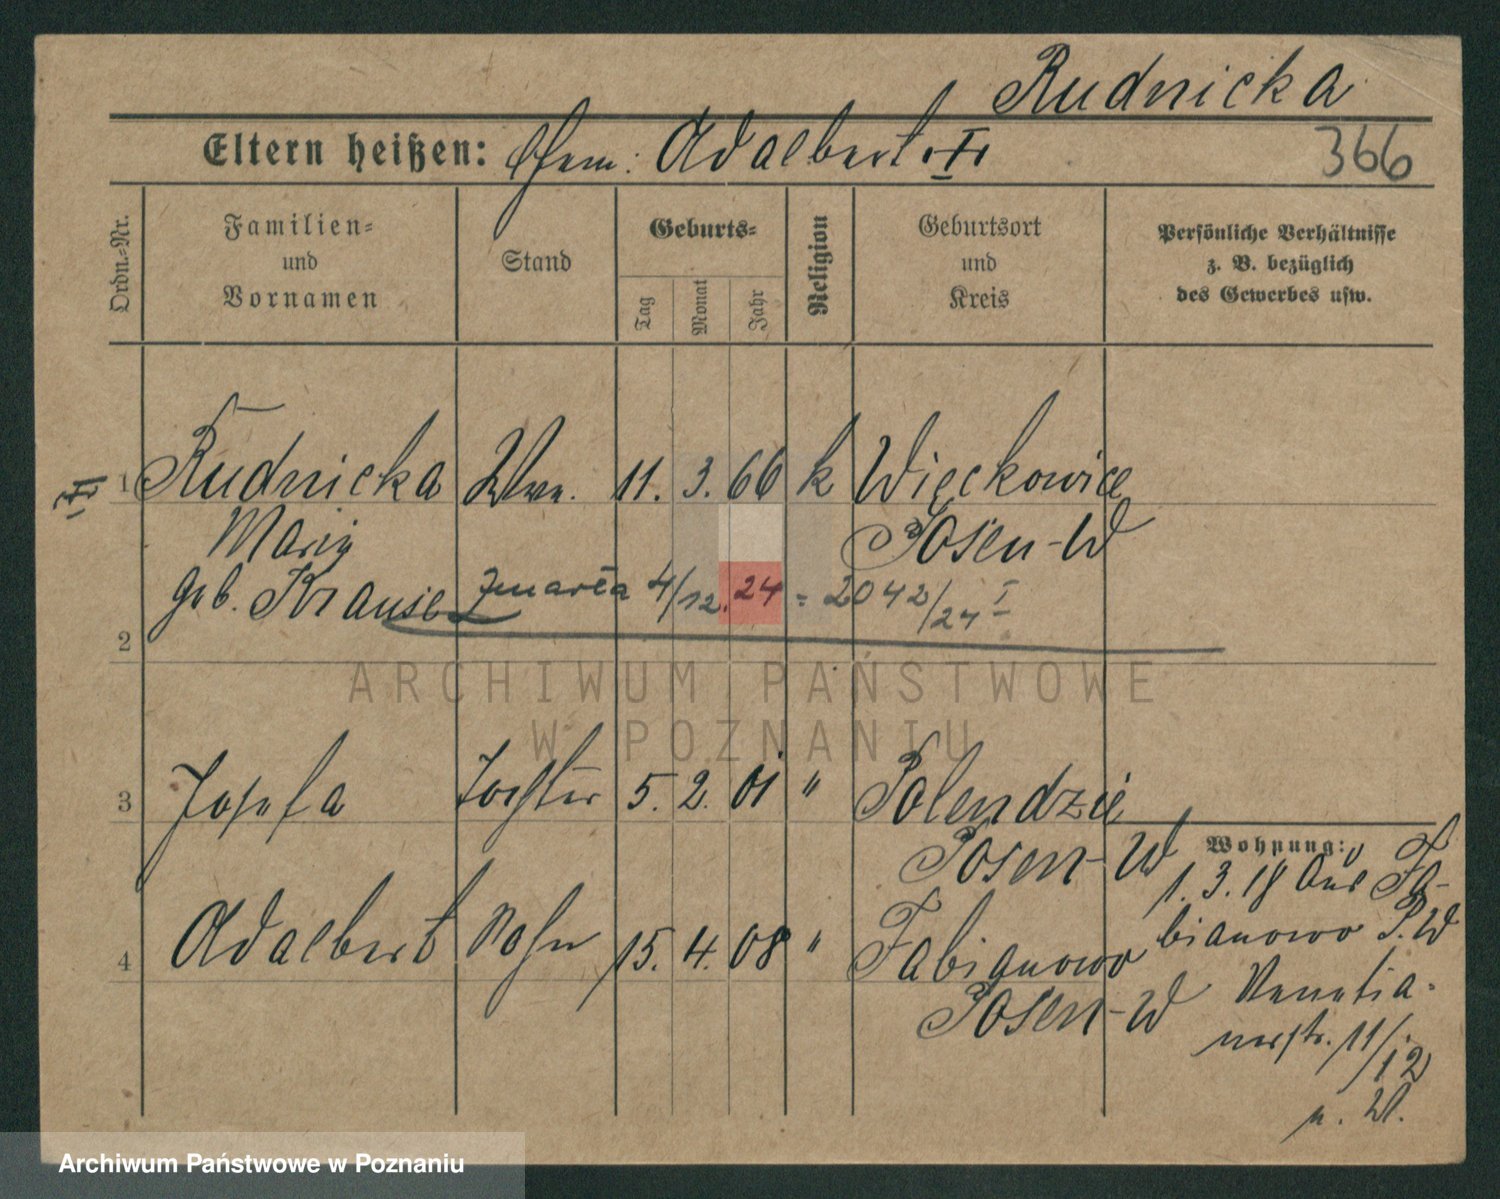 Rudnicka
Eltern heißen: Ehem: Adalbert †
366
Ordn.-Nr.
Familien-
und
Vornamen
Stand
Geburts-
Tag
Monat
Jahr
Religion
Geburtsort
und
Kreis
Persönliche Verhältnisse
z. B. bezüglich
des Gewerbes usw.
1 Rudnicka Wwe. 11. 3. 66 k Więckowice
Marie Posen-W
geb. Krause zmarła 4/12. 24 = 2042/24 I
2
ARCHIWUM PAŃSTWOWE
W POZNANIU
3 Josefa Tochter 5. 2. 01 " Polendzie
Posen-W
Wohnung:
1. 3. 18 aus Fa-
4 Adalbert Sohn 15. 4. 08 " Fabianowo
bianowo P. W
Posen-W
Venetia-
nerstr. 11/12
Archiwum Państwowe w Poznaniu